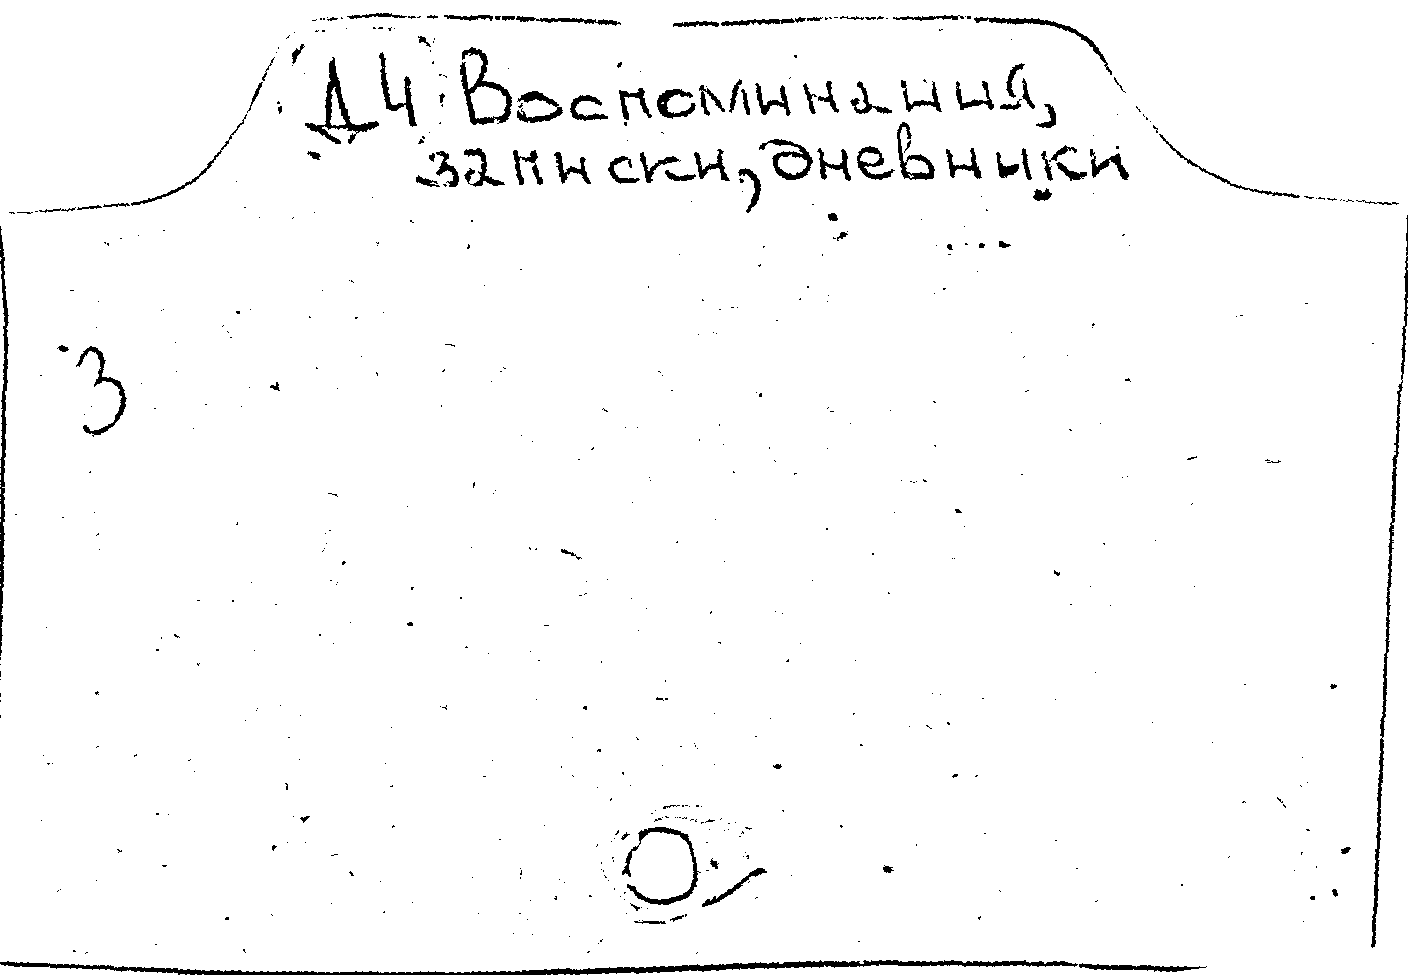 Д4 Воспоминания,
записки, дневники
3